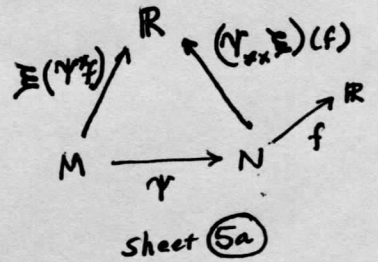 ℝ
Ξ(ψ*f) (ψ** Ξ)(f)
ℝ
M ψ N f
sheet 5a